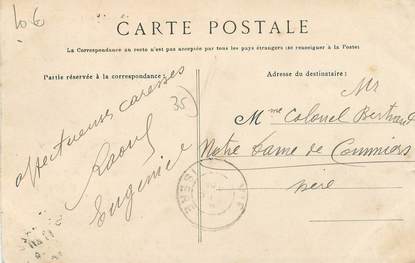 10 €
CARTE POSTALE
La Correspondance au recto n'est pas acceptée par tous les pays étrangers (se renseigner à la Poste)
Partie réservée à la correspondance:
Adresse du destinataire:
affectueuses caresses
Raoul
Eugénie
35
Mr
Mme Colonel Bertrand
Notre Dame de Commiers
Isère
VIF
ISERE